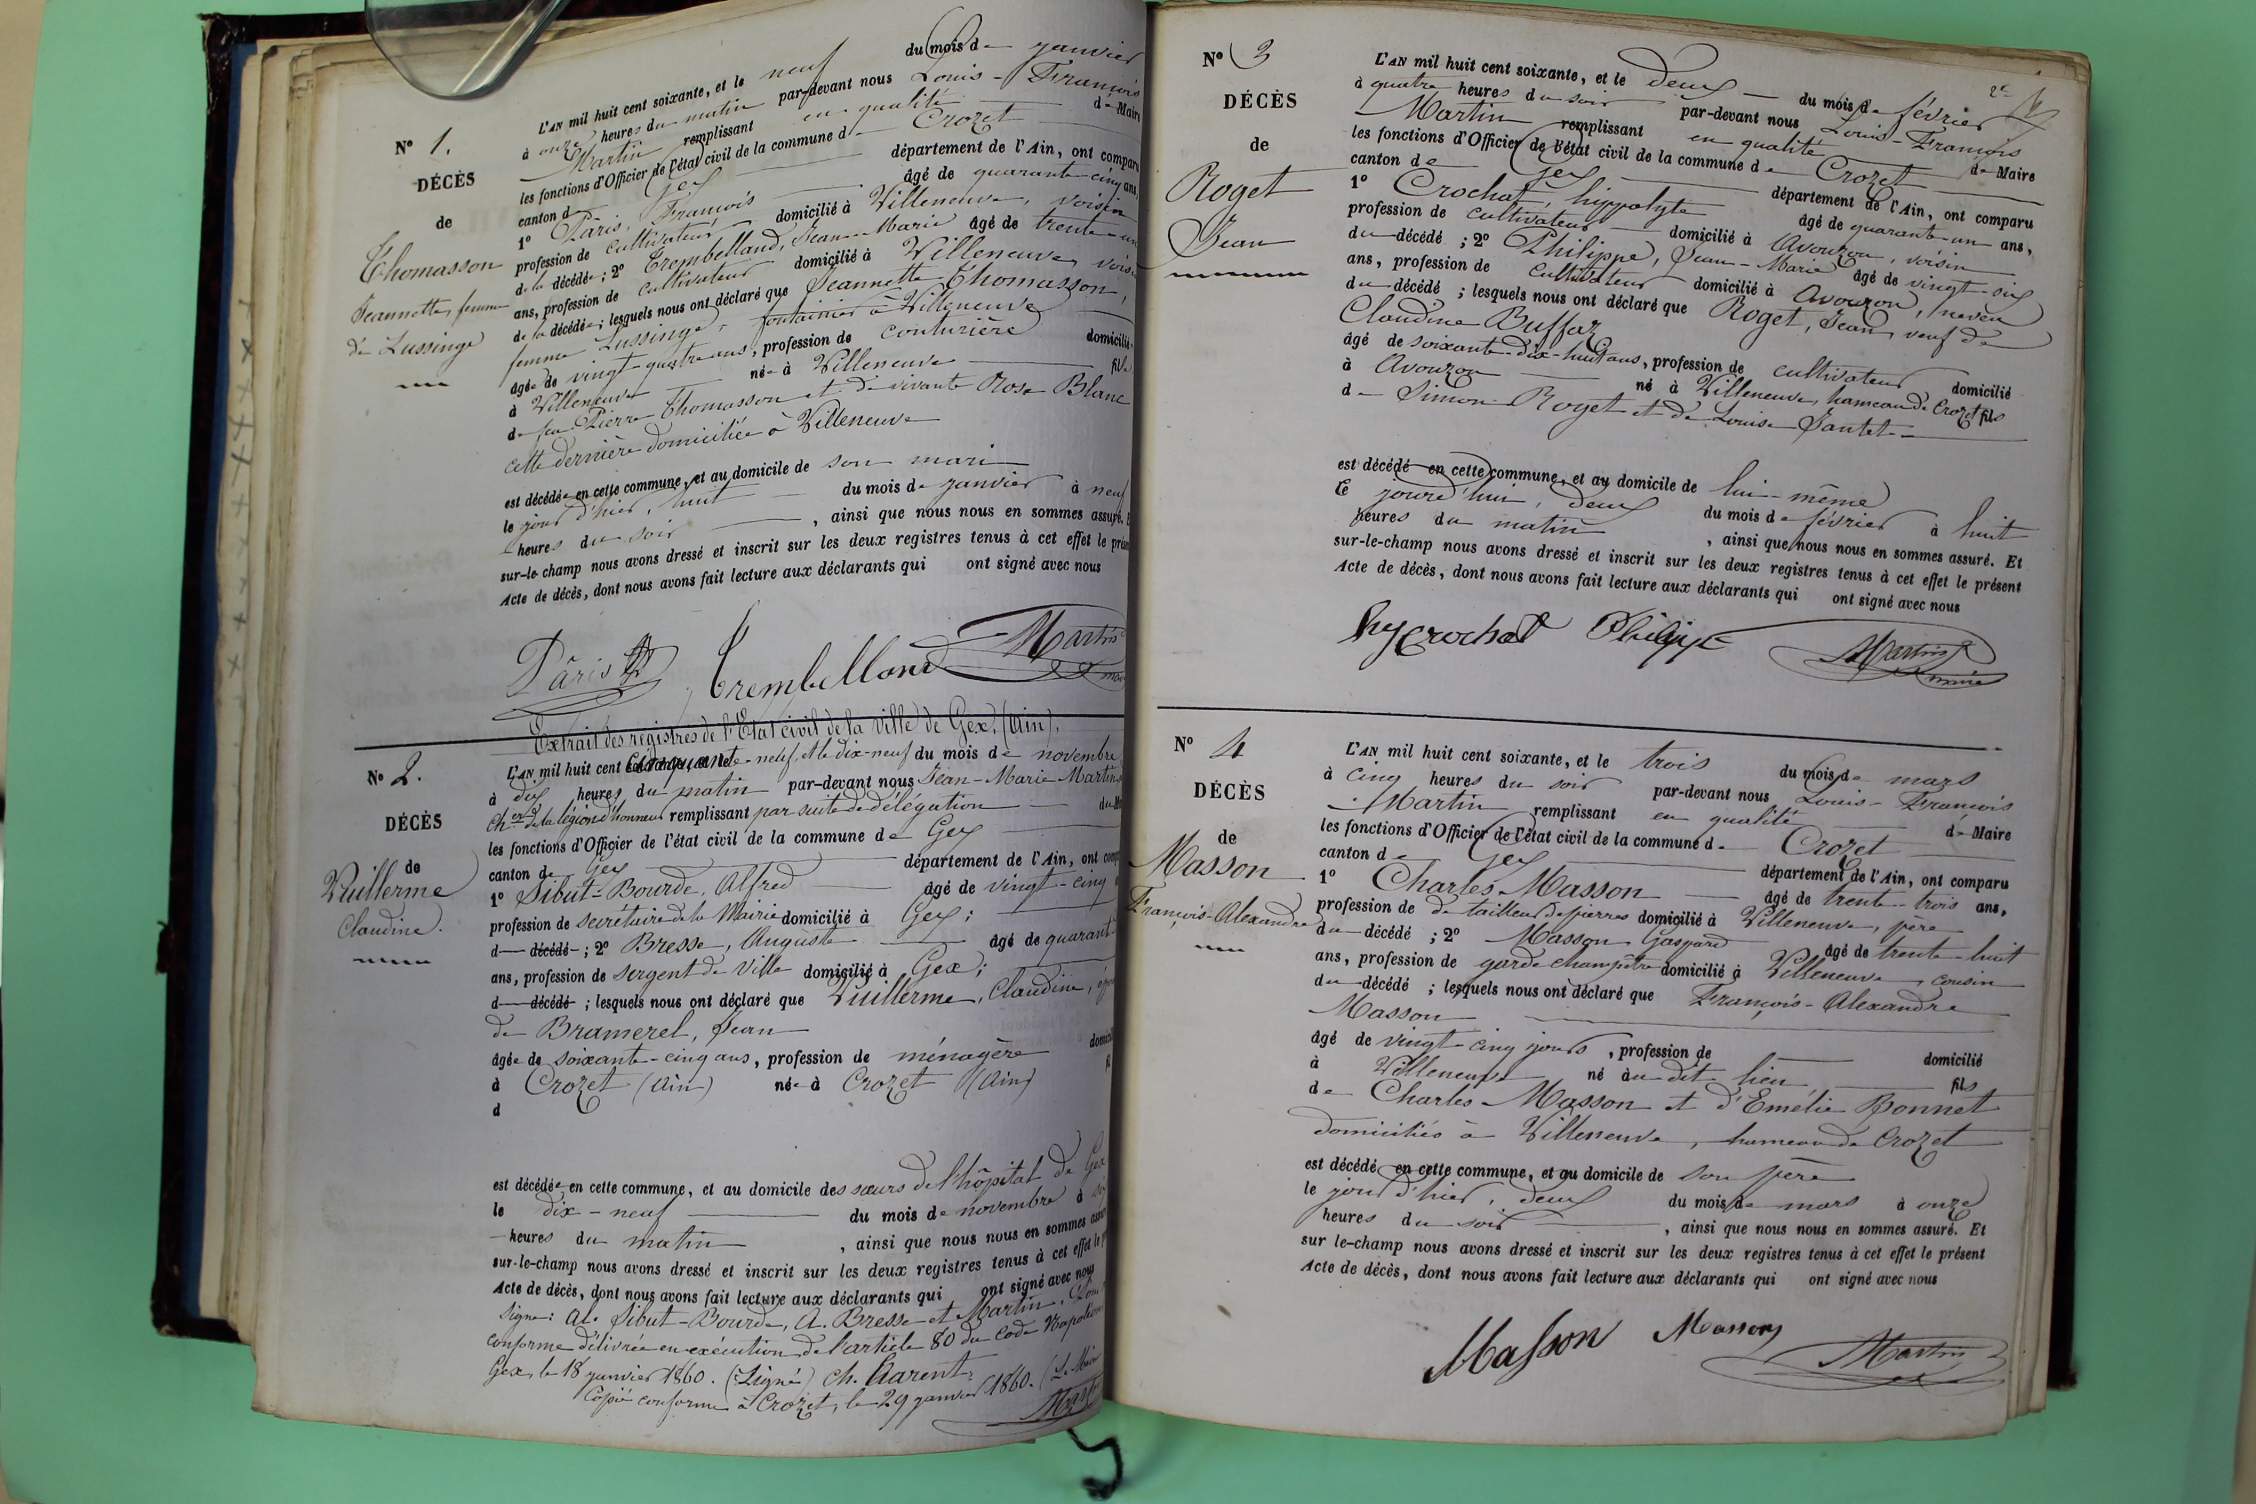 N° 1.
DÉCÈS
de
Thomasson
Jeannette, femme
de Lussinge
L'AN mil huit cent soixante, et le neuf du mois de janvier
à onze heures du matin par-devant nous Louis-François
Martin remplissant en qualité de Maire
les fonctions d'Officier de l'état civil de la commune de Crozet
canton de Gex département de l'Ain, ont comparu
1° Pâris, François âgé de quarante-cinq ans,
profession de cultivateur domicilié à Villeneuve, voisin
de la décédée; 2° Trembelland, Jean-Marie âgé de trente-un
ans, profession de cultivateur domicilié à Villeneuve, voisin
de la décédée; lesquels nous ont déclaré que Jeannette Thomasson,
femme Lussinge, fontainier à Villeneuve
âgée de vingt-quatre ans, profession de couturière domiciliée
à Villeneuve née à Villeneuve fille
de feu Pierre Thomasson et de vivante Rose Blanc
cette dernière domiciliée à Villeneuve
est décédée en cette commune, et au domicile de son mari
le jour d'hier, huit du mois de janvier à neuf
heures du soir, ainsi que nous nous en sommes assuré. Et
sur-le-champ nous avons dressé et inscrit sur les deux registres tenus à cet effet le présent
Acte de décès, dont nous avons fait lecture aux déclarants qui ont signé avec nous
Pâris Trembelland Martin
N° 2.
DÉCÈS
de
Vuillerme
Claudine.
Extrait des registres de l'Etat civil de la ville de Gex (Ain).
L'AN mil huit cent cinquante-neuf, et le dix-neuf du mois de novembre
à dix heures du matin par-devant nous Jean-Marie Martin
Cher de la légion d'honneur remplissant par suite de délégation du
les fonctions d'Officier de l'état civil de la commune de Gex
canton de Gex département de l'Ain, ont comparu
1° Sibut-Bourde, Alfred âgé de vingt-cinq
profession de secrétaire de la Mairie domicilié à Gex;
d décédé; 2° Bresse, Auguste âgé de quarante
ans, profession de sergent de Ville domicilié à Gex;
d décédé; lesquels nous ont déclaré que Vuillerme, Claudine,
de Bramerel, Jean
âgée de soixante-cinq ans, profession de ménagère
à Crozet (Ain) née à Crozet (Ain)
d
est décédée en cette commune, et au domicile des sœurs de l'hôpital de Gex
le dix-neuf du mois de novembre à
heures du matin, ainsi que nous nous en sommes assuré
sur-le-champ nous avons dressé et inscrit sur les deux registres tenus à cet effet le
Acte de décès, dont nous avons fait lecture aux déclarants qui ont signé avec nous
Signé: Al. Sibut-Bourde, A. Bresse et Martin.
conforme délivrée en exécution de l'article 80 du Code Napoléon
Gex, le 18 janvier 1860. (Signé) Ch.
Copié conforme à Crozet, le 29 janvier 1860. Le Maire
Martin
2e
N° 3
DÉCÈS
de
Roget
Jean
L'AN mil huit cent soixante, et le deux du mois de février
à quatre heures du soir par-devant nous Louis-François
Martin remplissant en qualité de Maire
les fonctions d'Officier de l'état civil de la commune de Crozet
canton de Gex département de l'Ain, ont comparu
1° Crochat, hippolyte âgé de quarante-un ans,
profession de cultivateur domicilié à Avouzon, voisin
du décédé; 2° Philippe, Jean-Marie âgé de vingt-six
ans, profession de cultivateur domicilié à Avouzon, neveu
du décédé; lesquels nous ont déclaré que Roget, Jean, veuf de
Claudine Buffaz
âgé de soixante-dix-huit ans, profession de cultivateur domicilié
à Avouzon né à Villeneuve, hameau de Crozet fils
de Simon Roget et de Louise Jantet
est décédé en cette commune, et au domicile de lui-même
le jourd'hui, deux du mois de février à huit
heures du matin, ainsi que nous nous en sommes assuré. Et
sur-le-champ nous avons dressé et inscrit sur les deux registres tenus à cet effet le présent
Acte de décès, dont nous avons fait lecture aux déclarants qui ont signé avec nous
hy Crochat Philippe Martin maire
N° 4
DÉCÈS
de
Masson
François-Alexandre
L'AN mil huit cent soixante, et le trois du mois de mars
à cinq heures du soir par-devant nous Louis-François
Martin remplissant en qualité de Maire
les fonctions d'Officier de l'état civil de la commune de Crozet
canton de Gex département de l'Ain, ont comparu
1° Charles Masson âgé de trente-trois ans,
profession de de tailleur de pierres domicilié à Villeneuve, père
du décédé; 2° Masson Gaspard âgé de trente-huit
ans, profession de garde champêtre domicilié à Villeneuve, cousin
du décédé; lesquels nous ont déclaré que François-Alexandre
Masson
âgé de vingt-cinq jours, profession de domicilié
à Villeneuve né au dit lieu, fils
de Charles Masson et d'Emélie Bonnet
domiciliés à Villeneuve, hameau de Crozet
est décédé en cette commune, et au domicile de son père
le jour d'hier, deux du mois de mars à onze
heures du soir, ainsi que nous nous en sommes assuré. Et
sur le-champ nous avons dressé et inscrit sur les deux registres tenus à cet effet le présent
Acte de décès, dont nous avons fait lecture aux déclarants qui ont signé avec nous
Masson Masson Martin